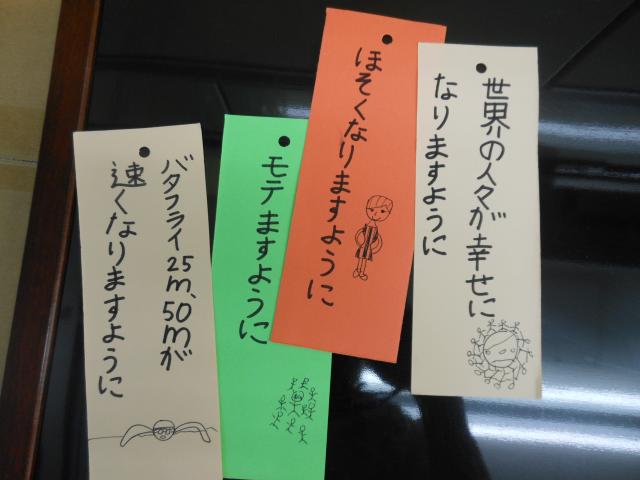 世界の人々が幸せに
なりますように
ほそくなりますように
モテますように
バタフライ25m、50mが
速くなりますように